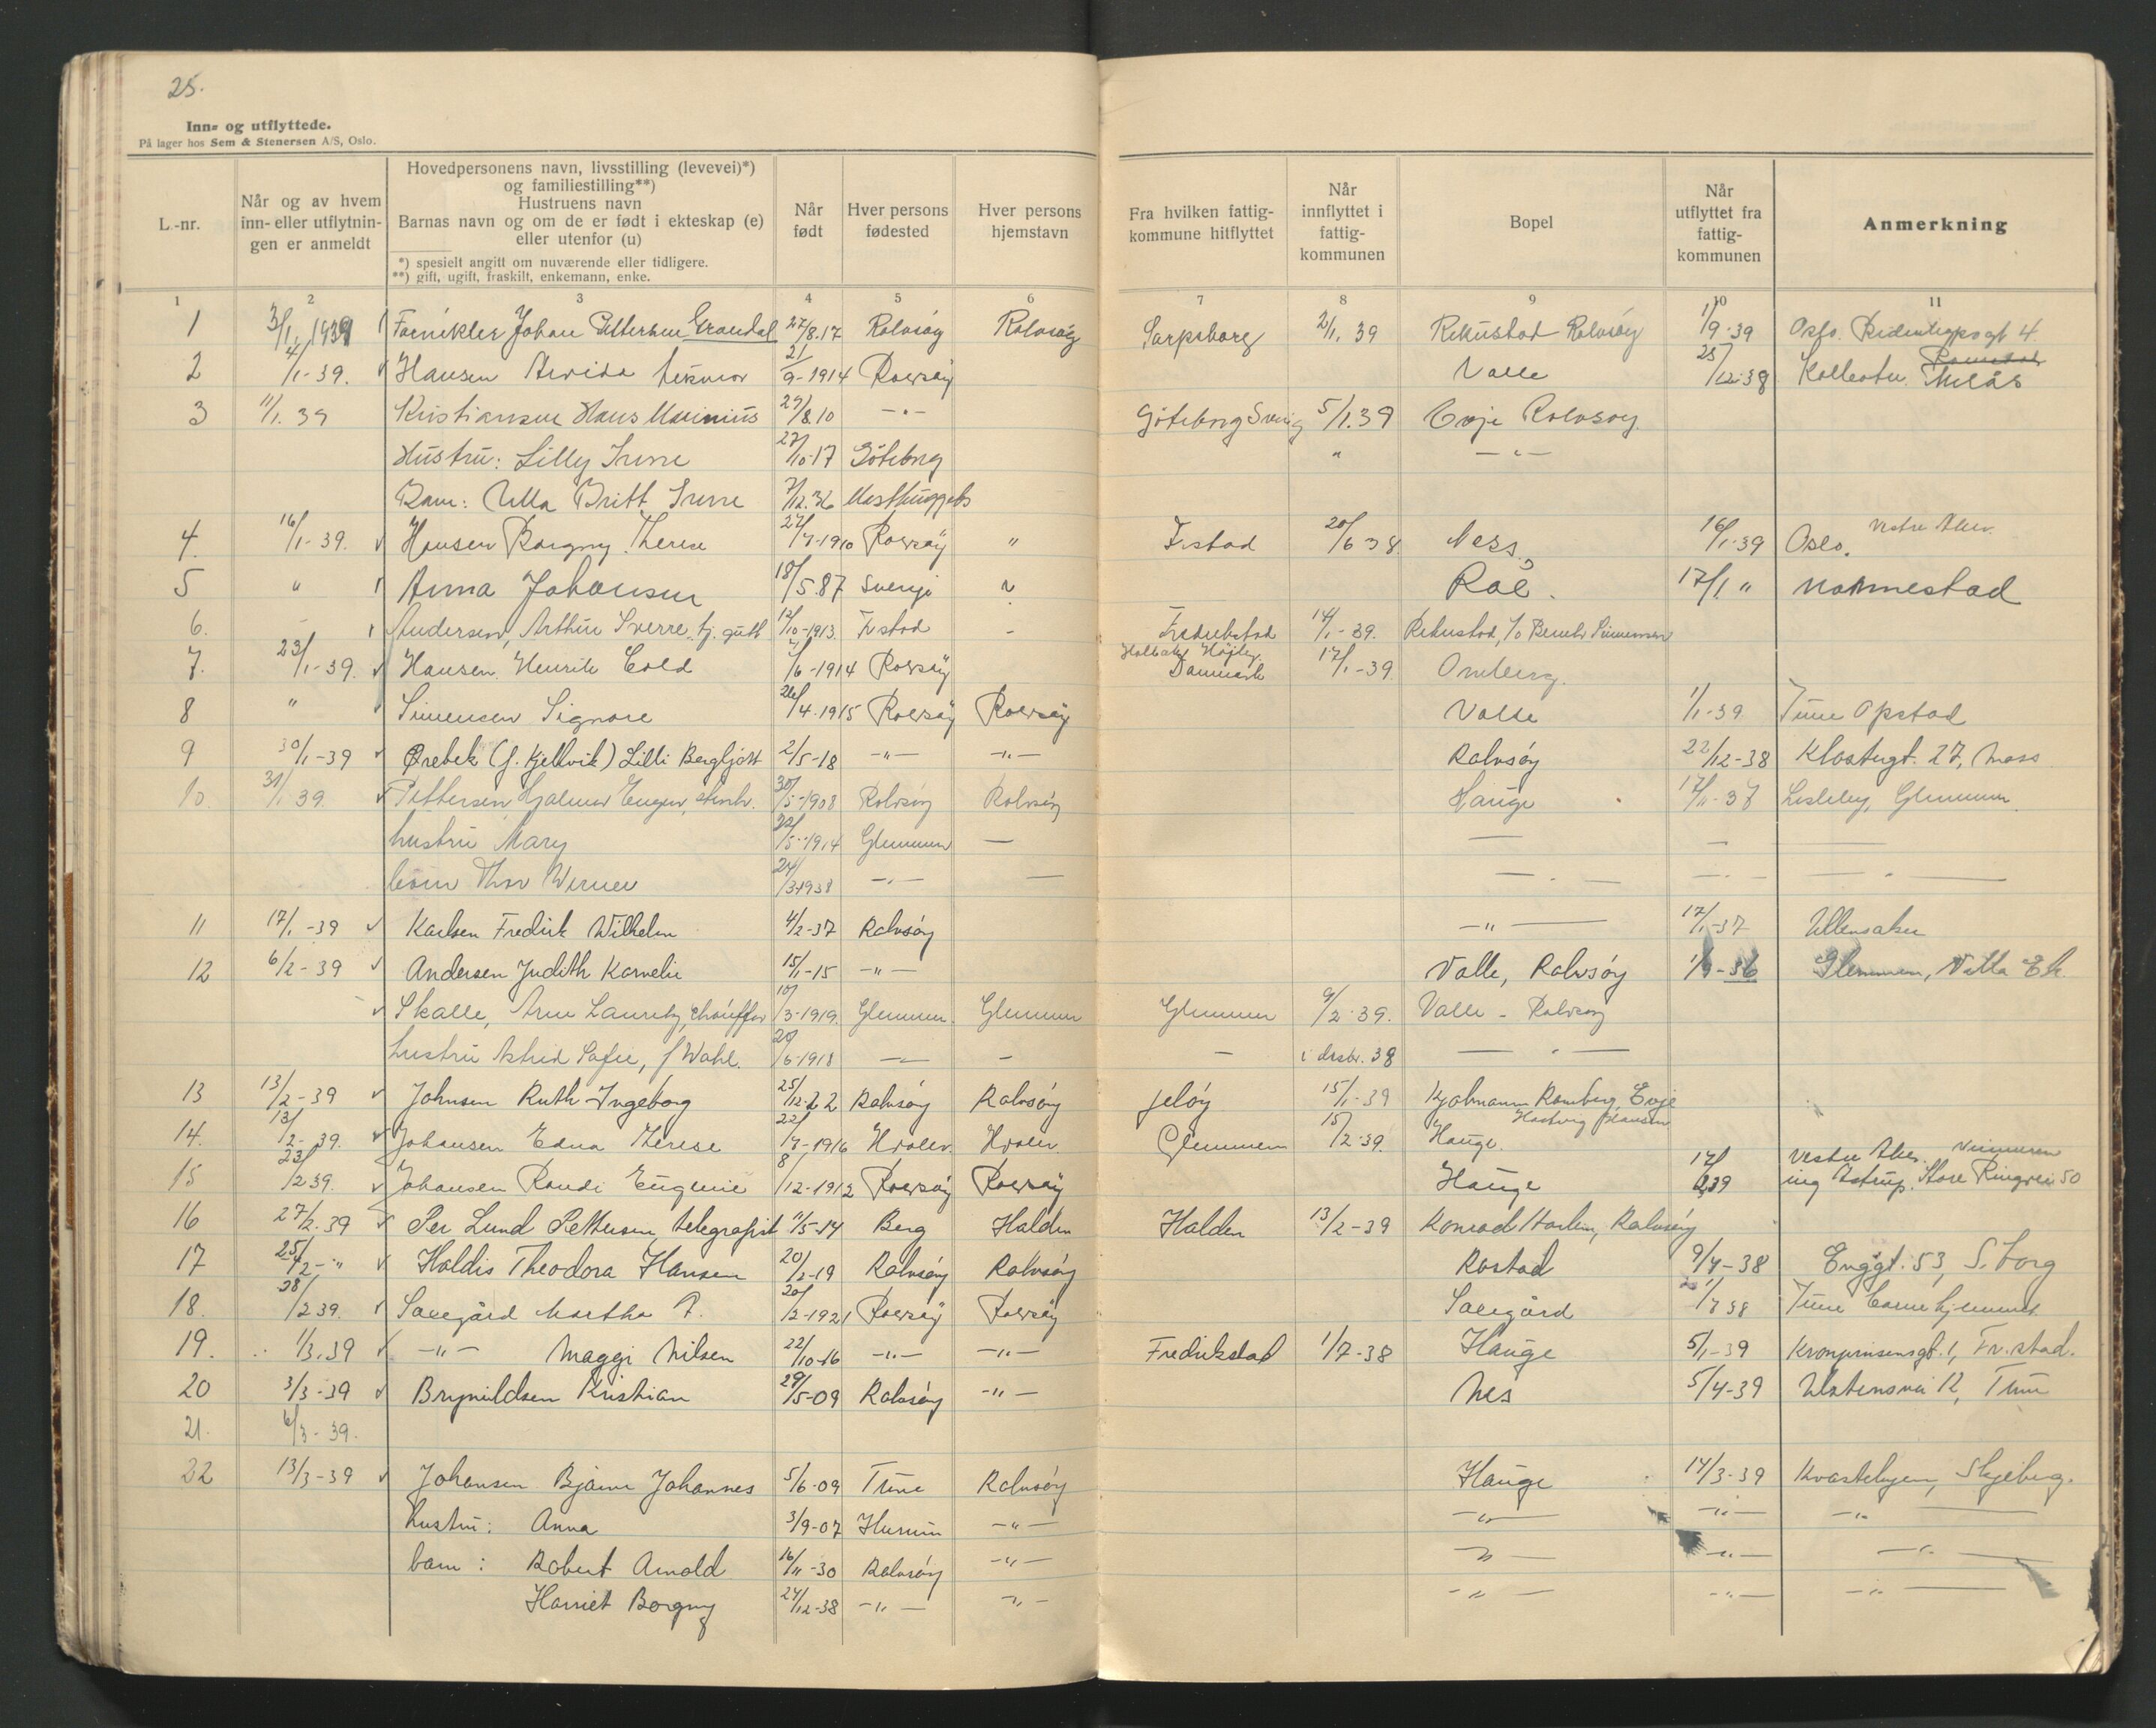 25.
Inn- og utflyttede.
På lager hos Sem & Stenersen A/S, Oslo.
L.-nr.
Når og av hvem inn- eller utflytnin-gen er anmeldt
Hovedpersonens navn, livsstilling (levevei)*)
og familiestilling**)
Hustruens navn
Barnas navn og om de er født i ekteskap (e)
eller utenfor (u)
*) spesielt angitt om nuværende eller tidligere.
**) gift, ugift, fraskilt, enkemann, enke.
Når født
Hver persons fødested
Hver persons hjemstavn
Fra hvilken fattig-kommune hitflyttet
Når innflyttet i fattig-kommunen
Bopel
Når utflyttet fra fattig-kommunen
Anmerkning
1 2 3 4 5 6 7 8 9 10 11
1 3/1 1939 Johan Grandal 27/8.17 Rolvsøy Rolvsøy Sarpsborg 2/1 39 Rekustad Rolvsøy 1/9-39 Oslo.
2 4/1-39. Hansen Arvida 21/9-1914 Rolvsøy Valle 28/12-38
3 11/1.39 Kristiansen Hans Marinius 29/8.10 -"- Göteborg Sverig 5/1.39 Evje Rolvsøy
Hustru: Lilly Irene 27/10-17 Göteborg " -"-
Barn: Ulla Britt Irene 7/12.36
4. 16/1-39. Hansen Borgny Therese 27/7-1910 Rolvsøy " Frstad 20/6 38 Ness. 16/1-39 Oslo. Vestre Aker.
5 " Anna Johansen 18/5.87 Sverige Roe. 17/1 " Navnestad
6. Andersen, Arthur Sverre, tj. gutt 12/10-1913. Frstad - Fredrikstad 14/1-39. Rekustad, c/o
7. 23/1-39. Hansen Henrik Eold 7/6-1914 Rolvsøy Højby Danmark 17/1-39 Omberg.
8 " Simensen Signore 26/4-1915 Rolvsøy Rolvsøy Valle 1/1-39 Tune Opstad
9 30/1-39 Ørebek (f. Kjellvik) Lilli Bergljott 2/5-18 -"- -"- Rolvsøy 22/12-38 Klostergt. 27, Moss
10. 31/1 39. Pettersen Hjalmar Eugen, stenh. 30/5-1908 Rolvsøy Rolvsøy Hauge 17/11-37 Lisleby, Glemmen.
hustru Mary 22/5-1914 Glemmen —
barn Thor Werner 24/3-1938 -"- —
11 17/1-39 Karlsen Fredrik Wilhelm 4/2-37 Rolvsøy -"- 17/1-37 Ullensaker
12 6/2-39 Andersen Judith Kornelie 15/1-15 -"- Valle, Rolvsøy 1/9-36 Glemmen, Villa Ek.
Skalle, Arne Lauritz, chauffør 10/3-1919. Glemmen. Glemmen Glemmen 9/2-39. Valle - Rolvsøy
hustru Astrid Sofie, f Wahl. 20/6-1918 -"- - - i desbr. 38 -"-
13 13/2-39 Johnsen Ruth Ingeborg 25/12-22 Rolvsøy Rolvsøy Jeløy 15/1-39 Hjalmann Romberg Evje
14. 13/2-39. Johansen Edna Therese 22/7-1916 Hvaler. Hvaler Glemmen 15/2-39. Hauge. Hartvig Hansen
15 23/2 39. Johansen Randi Eugenie 8/12-1912 Rolvsøy Rolvsøy Hauge 17/2 39 Vestre Aker. Vinneren ing Astrup. Store Ringvei 50
16 27/2.39 Per Lund Pettersen, telegrafist 11/5-14 Berg Halden Halden 13/2-39 Konrad Holm, Rolvsøy
17 25/2-" Haldis Theodora Hansen 20/2-19 Rolvsøy Rolvsøy Rostad 9/4-38 Enggt. 53, S.borg
18. 28/2 39. Solegård Martha P. 20/2-1921 Rolvsøy Rolvsøy Solegård 1/7 38 Tune Barnehjemmet
19. 1/3.39 -"- Maggi Nilsen 22/10-16 -"- -"- Fredrikstad 1/7-38 Hauge 5/1-39 Kronprinsensgt. 1, Fr.stad.
20 3/3-39 Brynildsen Kristian 29/5-09 Rolvsøy -"- Nes 5/4-39 Tune
21. 6/3-39.
22 13/3-39 Johansen Bjarne Johannes 5/6-09 Tune Rolvsøy Hauge 14/3-39 Skjeberg.
hustru: Anna 3/9-07 Hurum -"- -"- -"- -"-
barn: Robert Arnold 16/11-30 Rolvsøy -"- -"- -"- -"-
Harriet Borgny 24/12-38 -"- -"- -"- -"- -"-